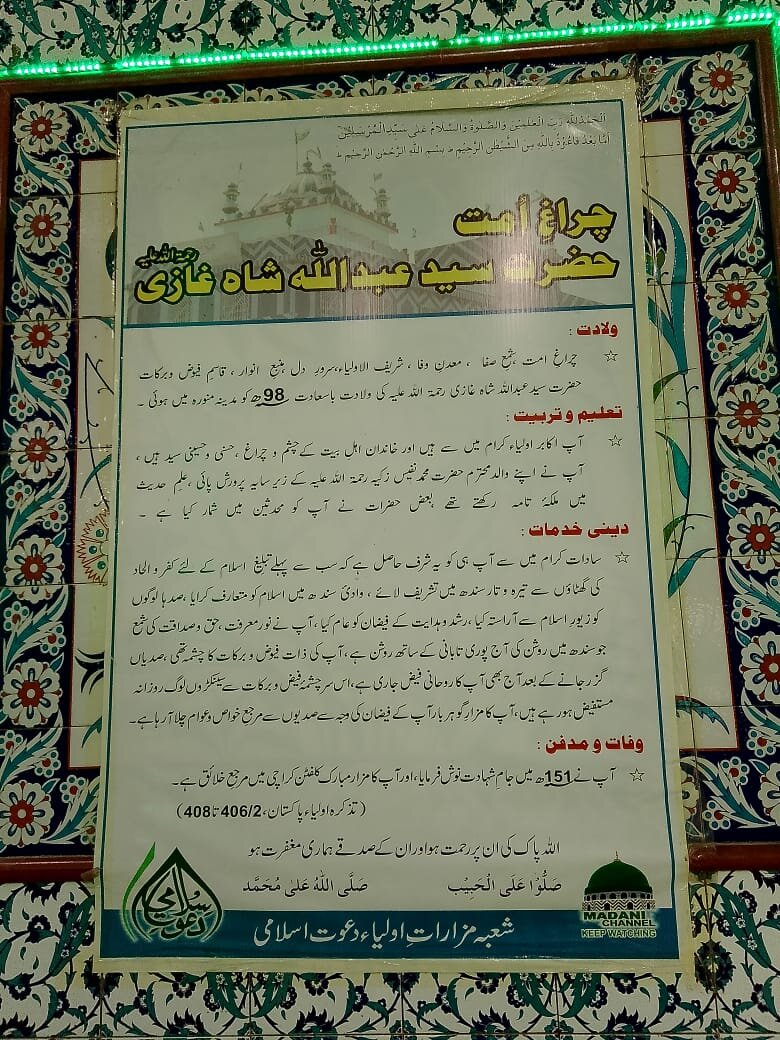 اَلْحَمْدُ لِلّٰهِ رَبِّ الْعٰلَمِیْنَ وَالصَّلٰوۃُ وَالسَّلَامُ عَلٰی سَیِّدِ الْمُرْسَلِیْنَ
اَمَّا بَعْدُ فَاَعُوْذُ بِاللّٰهِ مِنَ الشَّیْطٰنِ الرَّجِیْمِ ط بِسْمِ اللّٰهِ الرَّحْمٰنِ الرَّحِیْمِ ط
چراغِ اُمت
حضرت سید عبداللّٰہ شاہ غازی رحمۃ اللہ علیہ
ولادت :
☆ چراغِ امت ، شمع صفا ، معدنِ وفا ، شریف الاولیاء، سرورِ دل ، منبع انوار ، قاسمِ فیوض و برکات
حضرت سید عبداللہ شاہ غازی رحمۃ اللہ علیہ کی ولادت باسعادت 98ھ کو مدینہ منورہ میں ہوئی ۔
تعلیم و تربیت :
☆ آپ اکابر اولیاء کرام میں سے ہیں اور خاندان اہل بیت کے چشم و چراغ ، حسنی و حسینی سید ہیں ،
آپ نے اپنے والد محترم حضرت محمد نفیس زکیہ رحمۃ اللہ علیہ کے زیر سایہ پرورش پائی ، علم حدیث
میں ملکۂ تامہ رکھتے تھے بعض حضرات نے آپ کو محدثین میں شمار کیا ہے ۔
دینی خدمات :
☆ سادات کرام میں سے آپ ہی کو یہ شرف حاصل ہے کہ سب سے پہلے تبلیغ اسلام کے لئے کفر و الحاد
کی گھٹاؤں سے تیرہ و تار سندھ میں تشریف لائے ، وادیٔ سندھ میں اسلام کو متعارف کرایا ، صدہا لوگوں
کو زیورِ اسلام سے آراستہ کیا ، رشد و ہدایت کے فیضان کو عام کیا ، آپ نے نورِ معرفت ، حق و صداقت کی شمع
جو سندھ میں روشن کی آج پوری تابانی کے ساتھ روشن ہے ، آپ کی ذات فیوض و برکات کا چشمہ تھی ، صدیاں
گزر جانے کے بعد آج بھی آپ کا روحانی فیض جاری ہے ، اس سرچشمۂ فیض و برکات سے سینکڑوں لوگ روزانہ
مستفیض ہو رہے ہیں ، آپ کا مزار گوہر بار آپ کے فیضان کی وجہ سے صدیوں سے مرجع خواص و عوام چلا آ رہا ہے۔
وفات و مدفن :
☆ آپ نے 151ھ میں جامِ شہادت نوش فرمایا ، اور آپ کا مزار مبارک کلفٹن کراچی میں مرجع خلائق ہے۔
(تذکرہ اولیاء پاکستان، 406/2 تا 408)
اللہ پاک کی ان پر رحمت ہو اور ان کے صدقے ہماری مغفرت ہو
صَلُّوْا عَلَی الْحَبِیْب صَلَّی اللّٰهُ عَلٰی مُحَمَّد
دعوتِ اسلامی
MADANI
CHANNEL
KEEP WATCHING
شعبہ مزاراتِ اولیاء دعوت اسلامی